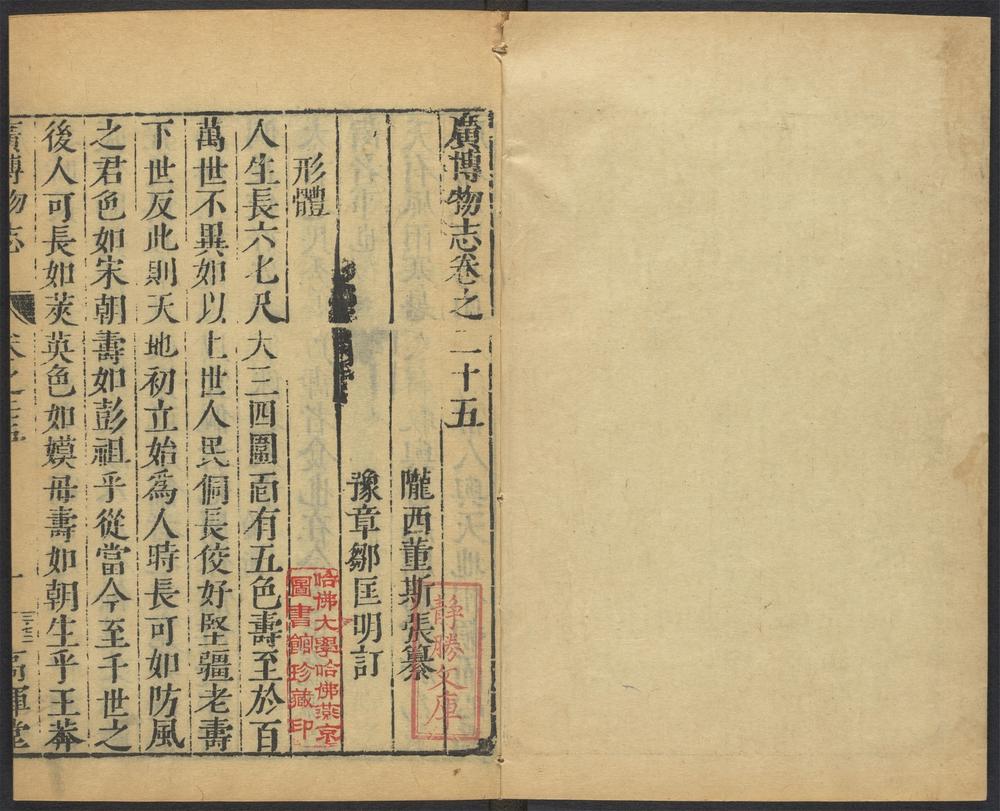 廣博物志卷之二十五
隴西董斯張纂
豫章鄒匡明訂
形體
人生長六七尺大三四圍面有五色壽至於百
萬世不異如以上世人民侗長佼好堅彊老壽
下世反此則天地初立始爲人時長可如防風
之君色如宋朝壽如彭祖乎從當今至千世之
後人可長如莢英色如嫫母壽如朝生乎王莽
廣博物志
卷之二十五
一
高暉堂
靜勝文庫
哈佛大學哈佛燕京
圖書館珍藏印